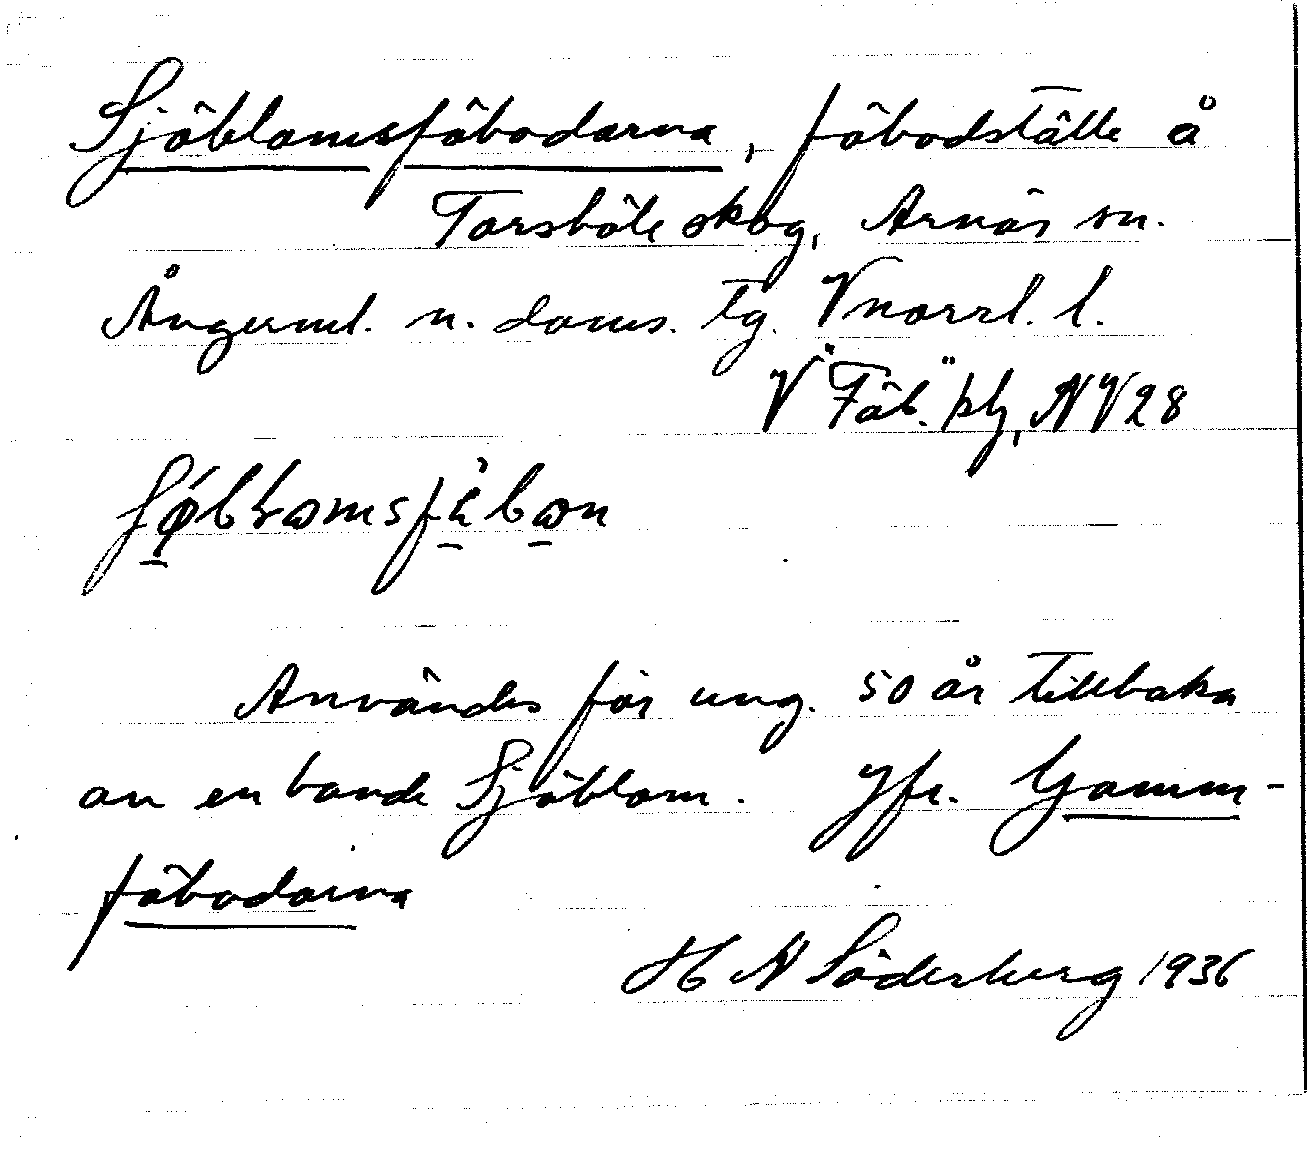 Sjöblomsfäbodarna, fäbodställe å
Torsböle skog, Arnäs sn.
Ångerml. n. doms. tg. Vnorrl. l.
V "Fäb." NV28
Användes för ung. 50 år tillbaka
av en bonde Sjöblom. Jfr. Gamm-
fäbodarna
H N Söderberg 1936